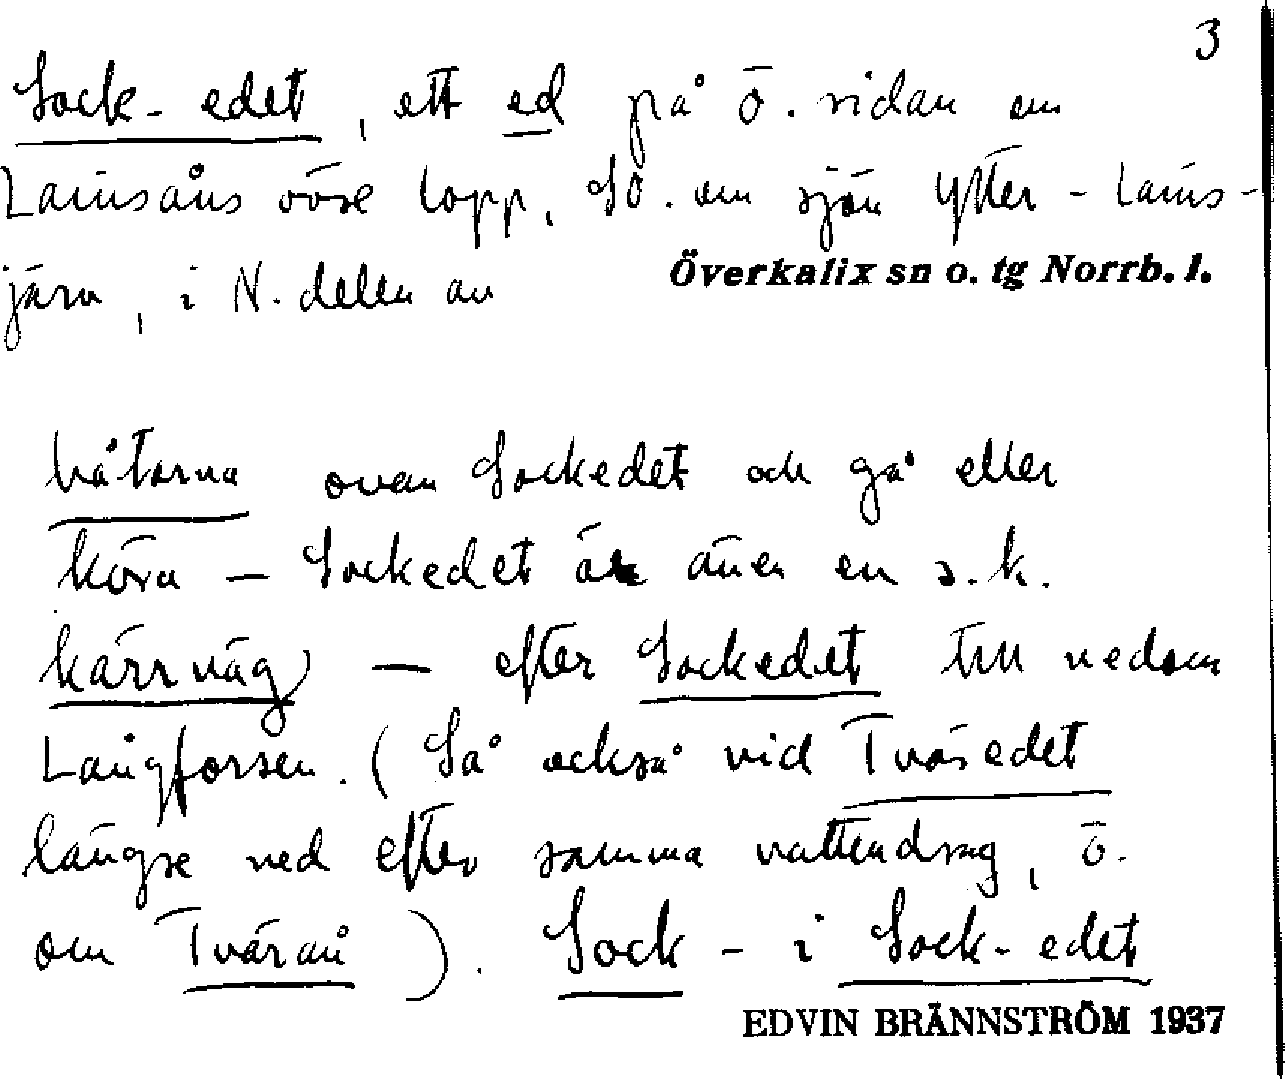 3
Sock-edet, ett ed på ö. sidan om
Lainsåns övre lopp, SÖ. om sjön Ytter-Lains-
järv, i N. delen av
Överkalix sn o. tg Norrb. l.
båtarna ovan Sockedet och gå eller
köra – Sockedet är även en s.k.
kärrväg – efter Sockedet till nedom
Långforsen. (Så också vid Tväredet
längre ned efter samma vattendrag, ö.
om Tvärån). Sock- i Sock-edet
EDVIN BRÄNNSTRÖM 1937